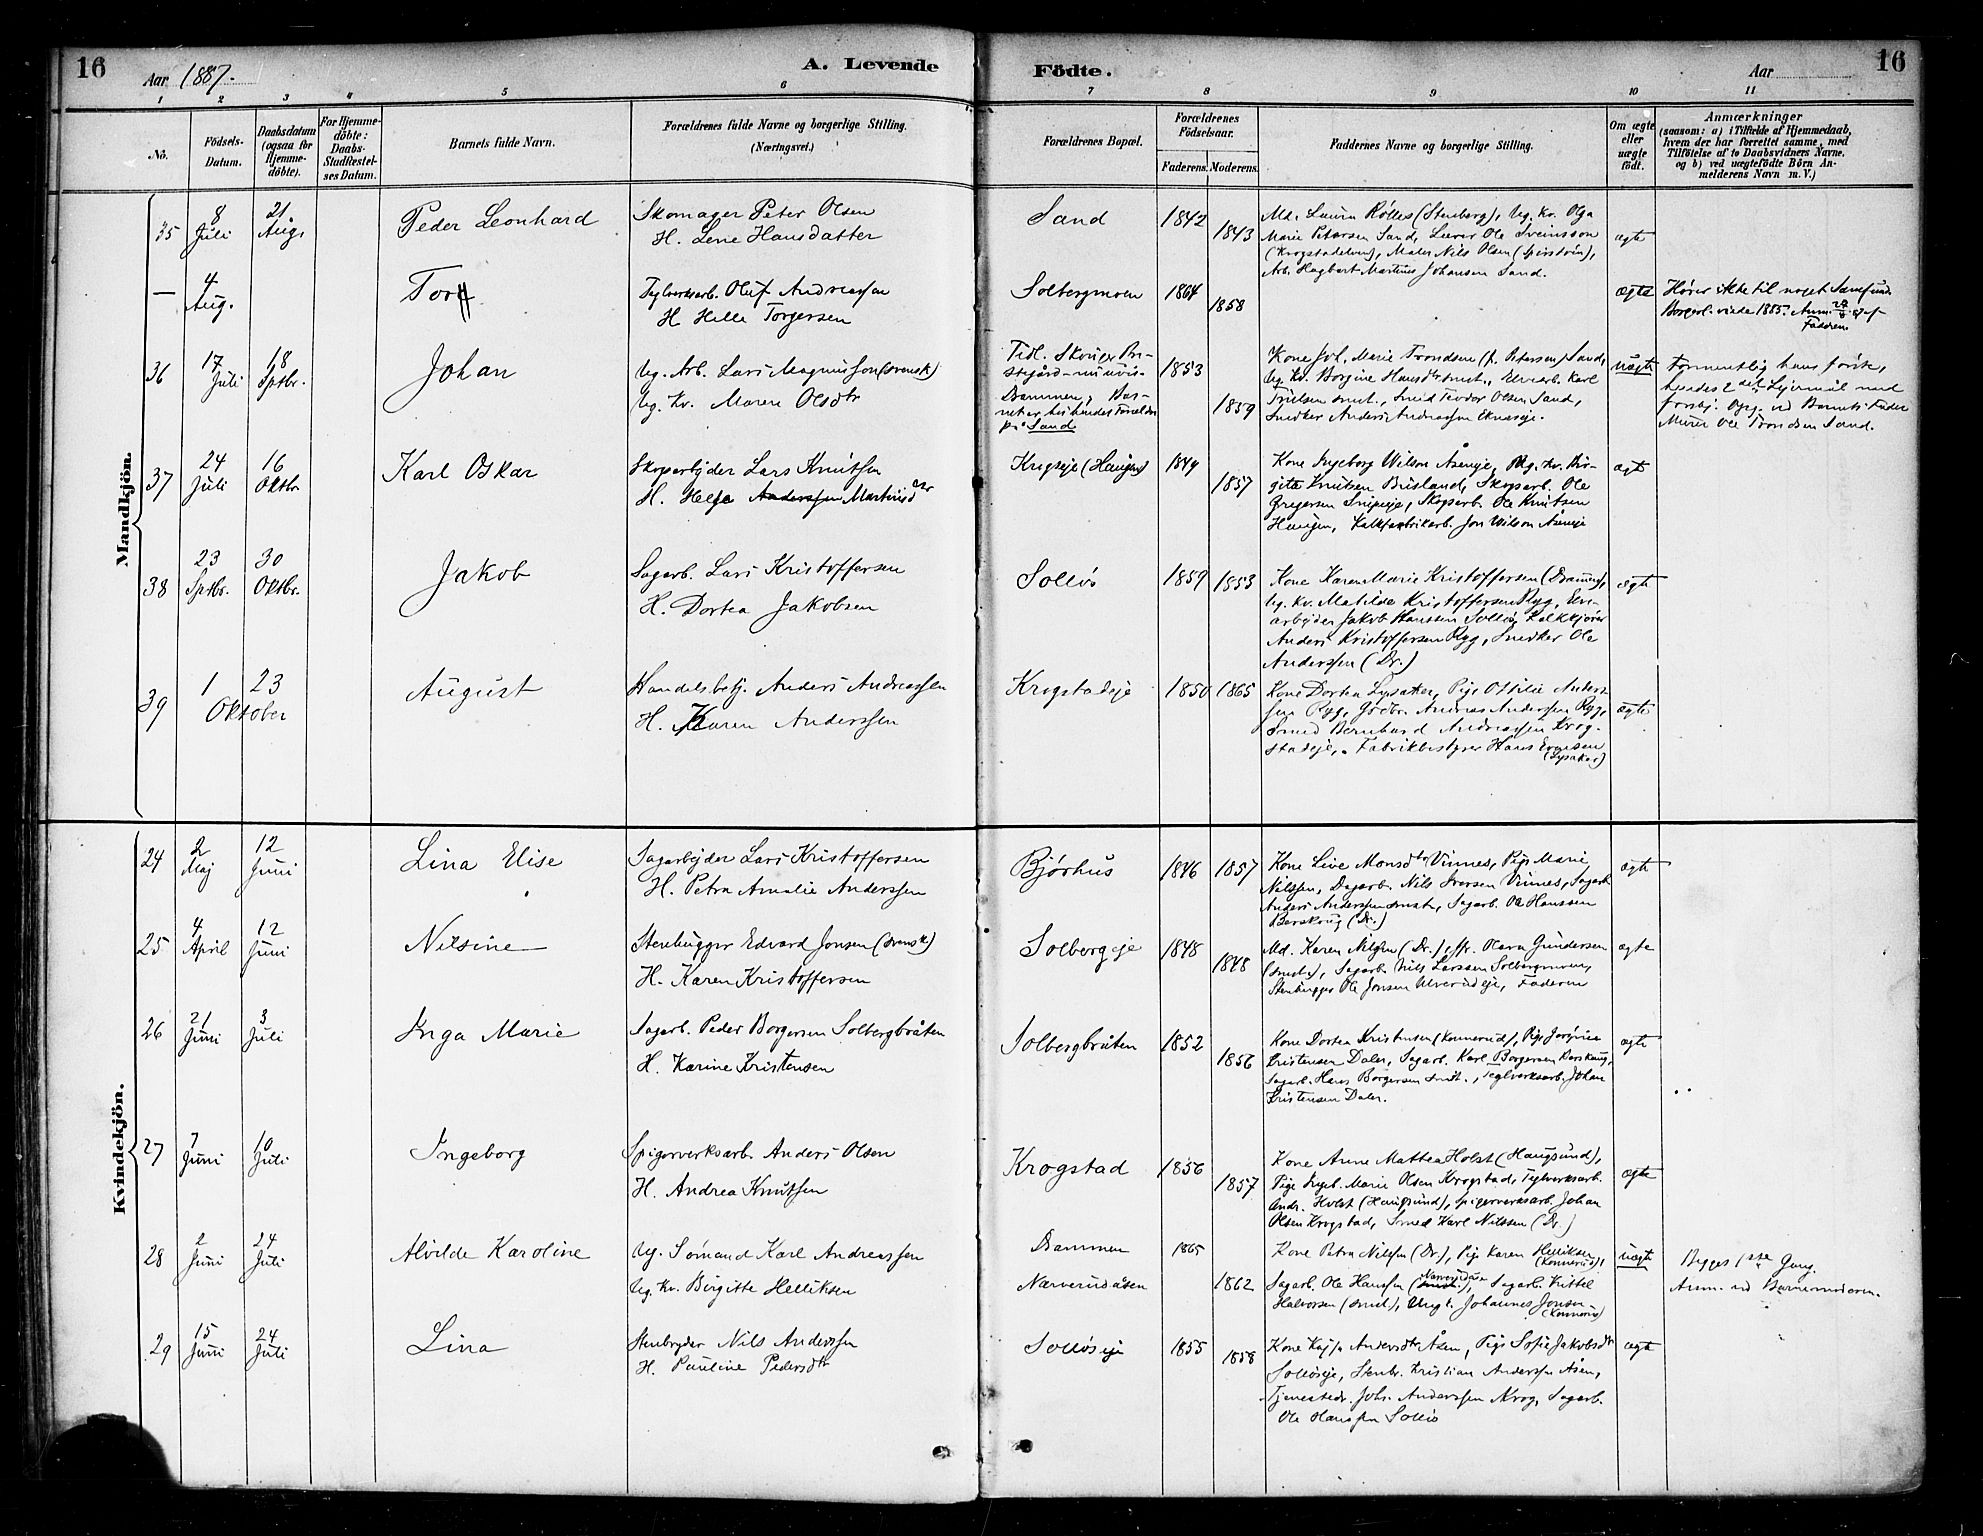 16
Aar 1887.
A. Levende
Födte.
Aar
16
1 2 3 4 5 6 7 8 9 10 11
No.
Födsels-
Datum.
Daabsdatum
(ogsaa for
Hjemme-
döbte).
For Hjemme-
döbte:
Daabs-
Stadfæstel-
ses Datum.
Barnets fulde Navn.
Forældrenes fulde Navne og borgerlige Stilling.
(Næringsvei.)
Forældrenes Bopæl.
Forældrenes
Födselsaar.
Faderens.
Moderens.
Faddernes Navne og borgerlige Stilling.
Om ægte
eller
uægte
født.
Anmærkninger
(saasom: a) i Tilfælde af Hjemmedaab,
hvem der har forrettet samme, med
Tilföielse af to Daabsvidners Navne,
og b) ved uægtefödte Börn An-
melderens Navn m. V.)
Mandkjön.
35
8 Juli
21 Aug.
Peder Leonhard
Skomager Peter Olsen
H. Lene Hansdatter
Sand
1842
1843
Md. Laura Rölles (Stenberg), Ug. Kv. Olga
Marie Petersen Sand, Lærer Ole Sveinsson
(Krogstadelven), Maler Nils Olsen (Spirströin),
Arb. Hagbart Martinus Johansen Sand.
ægte
—
4 Aug.
Tor
Teglverksarb. Oluf Andreassen
H. Helle Torgersen
Solbergmoen
1864
1858
ægte
Hører ikke til noget Samfund.
Borgerl. viede 1885. Anm. af
Faderen
36
17 Juli
18 Sptbr.
Johan
Ug. Arb. Lars Magnusson (svensk)
Ug. Kv. Maren Olsdtr
Tidl. Skouger Præ-
stegård - nu
Drammen, Bar-
net er hos hendes Forældre
på Sand
1853
1859
Kone Joh. Marie Trondsen (f. Petersen) Sand,
Ug. Kv. Borgine Hansdtr smst., Elvearb. Karl
Trulsen smst., Smed Teodor Olsen Sand,
Snedker Anders Andreassen Eknæseje.
uægte
Formentlig hans første,
hendes 2det Lejermål med
forskj. Opg. ved Barnets Fader
Murer Ole Trondsen Sand.
37
24 Juli
16 Oktbr.
Karl Oskar
Skoparbejder Lars Knutsen
H. Helga Anderssen Martinsdtr
Krogseje (Haugen)
1849
1857
Kone Ingeborg Wilson Åseneje, Ug. Kv. Bir-
gite Knutsen Brusland, Skoparb. Ole
Gregersen Snipeje, Skoparb. Ole Knutsen
Haugen, Kalkfabrikarb. Jon Wilson Åseneje
ægt
38
23 Sptbr.
30 Oktbr.
Jakob
Sagarb. Lars Kristoffersen
H. Dortea Jakobsen
Solløs
1859
1853
Kone Karen Marie Kristoffersen (Drammen),
Ug. Kv. Matilde Kristoffersen Ryg, Elve-
arbejder Jakob Hanssen Solløs, Kalkkjører
Anders Kristoffersen Ryg, Snedker Ole
Anderssen (Dr.)
ægte
39
1
23
Oktober
August
Handelsbetj. Anders Andreassen
H. Karen Anderssen
Krogstadeje
1850
1865
Kone Dortea Lysaker, Pige Ottilie Anders-
sen Ryg, Gårdbr. Andreas Anderssen Ryg,
Smed Bernhard Andreassen Krog-
stadeje, Fabrikbestyrer Hans Evensen
(Lysaker)
ægte
Kvindekjön.
24
2 Maj
12 Juni
Lina Elise
Sagarbejder Lars Kristoffersen
H. Petra Amalie Anderssen
Bjørhus
1846
1857
Kone Live Monsdtr Vinnes, Pige Marie
Nilssen, Dagarb. Nils Iversen Vinnes, Sagarb.
Anders Anderssen smst., Sagarb. Ole Hanssen
Berskaug (Dr.)
ægte
25
4 April
12 Juni
Nilsine
Stenhugger Edvard Jonsen (svensk)
H. Karen Kristoffersen
Solbergeje
1848
1848
Md. Karen Nilssen (Dr.), Fr. Olava Gundersen
(smst.), Sagarb. Nils Larssen Solbergmoen,
Stenhugger Ole Jonsen Ulverudeje, Faderen
ægte
26
21 Juni
3 Juli
Inga Marie
Sagarb. Peder Borgersen Solbergbråten
H. Karine Kristensen
Solbergbråten
1852
1856
Kone Dortea Kristensen (Konnerud), Pige Jorgine
Kristensen Daler, Sagarb. Karl Borgersen Berskaug,
Sagarb. Hans Borgersen smst., Teglverksarb. Johan
Kristensen Daler.
ægte
27
7 Juni
10 Juli
Ingeborg
Spigerverksarb. Anders Olsen
H. Andrea Knutsen
Krogstad
1856
1857
Kone Anne Mattea Holst (Haugsund),
Pige Ingeb. Marie Olsen Krogstad, Teglverksarb.
Andr. Holst (Haugsund), Spigerverksarb. Johan
Olsen Krogstad, Smed Karl Nilssen (Dr.)
ægte
28
2 Juni
24 Juli
Alvilde Karoline
Ug. Sømand Karl Andreassen
Ug. Kv. Birgitte Helliksen
Drammen
Nærverudåsen
1865
1862
Kone Petra Nilssen (Dr.), Pige Karen Helliksen
(Konnerud),
Sagarb. Ole Hanssen (Nærverudåsen), Sagarb. Kittel
Halvorsen (smst.), Ungk. Johannes Jonsen
(Konnerud)
uægte
Begges 1ste Gang.
Anm. ved Barnemoderen.
29
15 Juni
24 Juli
Lina
Stenbryder Nils Anderssen
H. Pauline Pedersdtr
Solløseje
1855
1858
Kone Kajsa Andersdtr Åsen, Pige Sofie Jakobsdtr
Solløseje, Stenbr. Kristian Anderssen Åsen,
Tjenestedr. Johs. Anderssen Krog, Sagarb.
Ole Hanssen Solløs
ægte